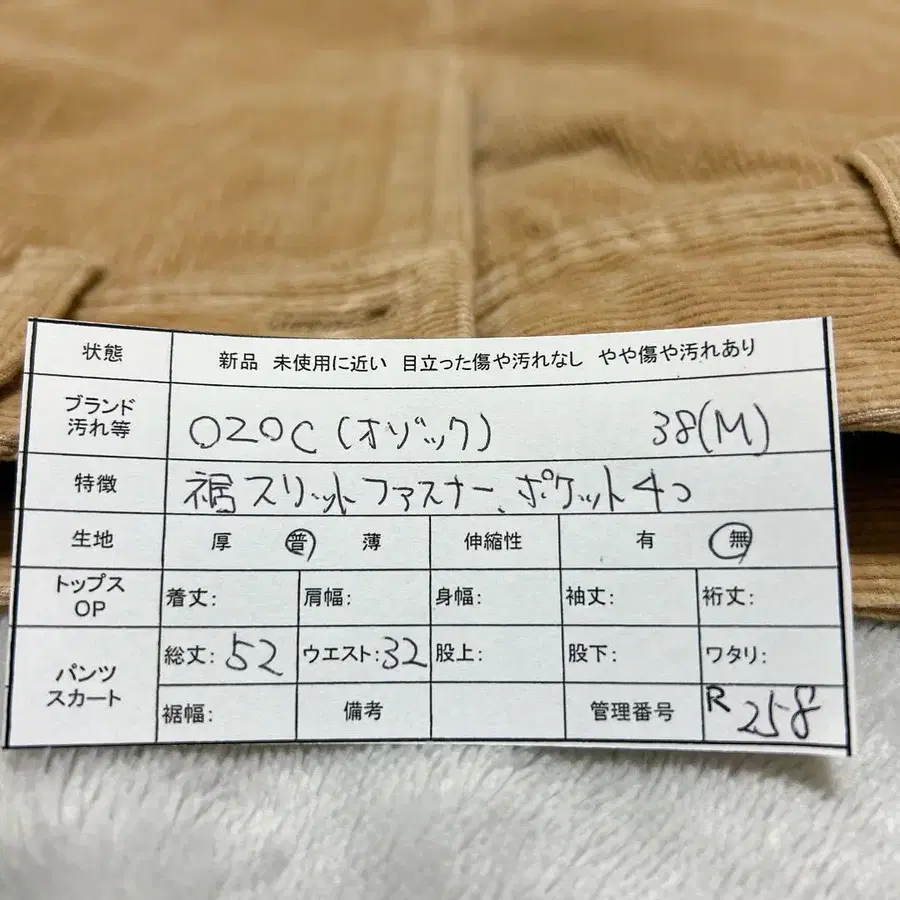 状態 新品 未使用に近い 目立った傷や汚れなし やや傷や汚れあり
ブランド
汚れ等 OZOC (オゾック) 38(M)
特徴 裾スリットファスナー、ポケット4つ
生地 厚 普 薄 伸縮性 有 無
トップス
OP 着丈: 肩幅: 身幅: 袖丈: 裄丈:
パンツ
スカート 総丈: 52 ウエスト: 32 股上: 股下: ワタリ:
裾幅: 備考 管理番号 R 258